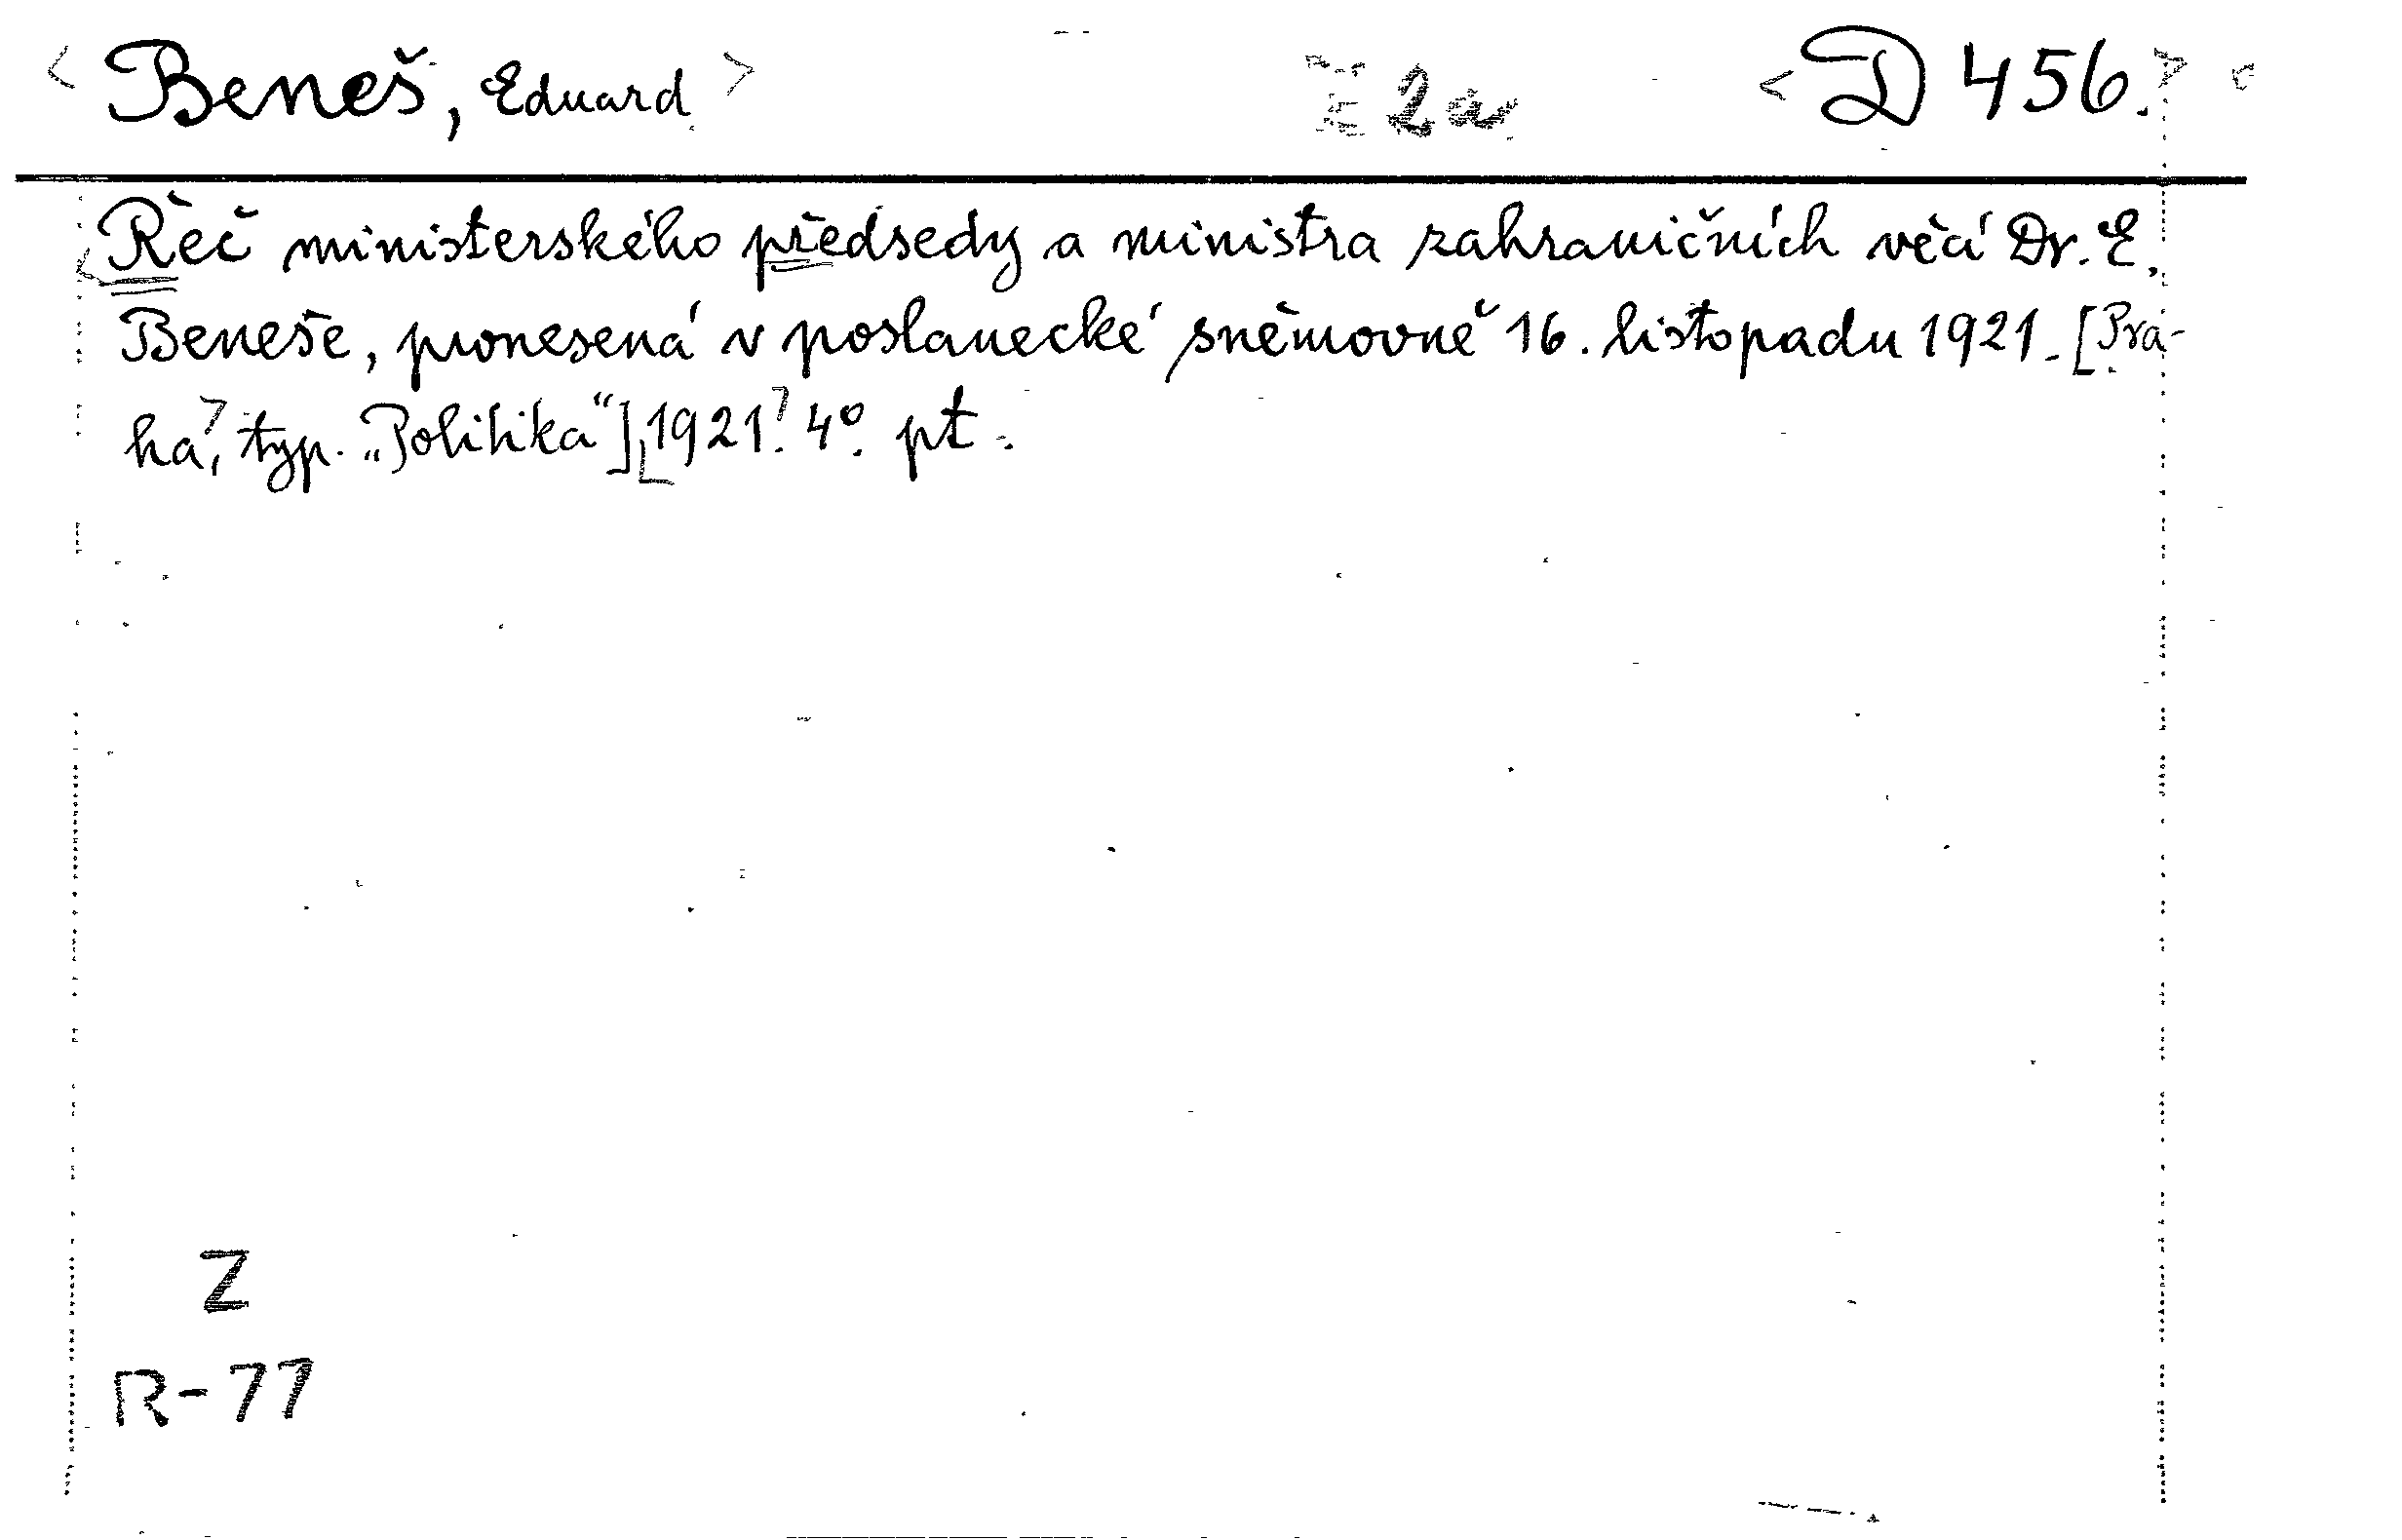 < Beneš, Eduard > 2a < D 456. >
Řeč ministerského předsedy a ministra zahraničních věcí Dr. E.
Beneše, pronesená v poslanecké sněmovně 16. listopadu 1921. [Pra-
ha, typ. „Politika“] 1921. 4º. pt.
Z
R-77